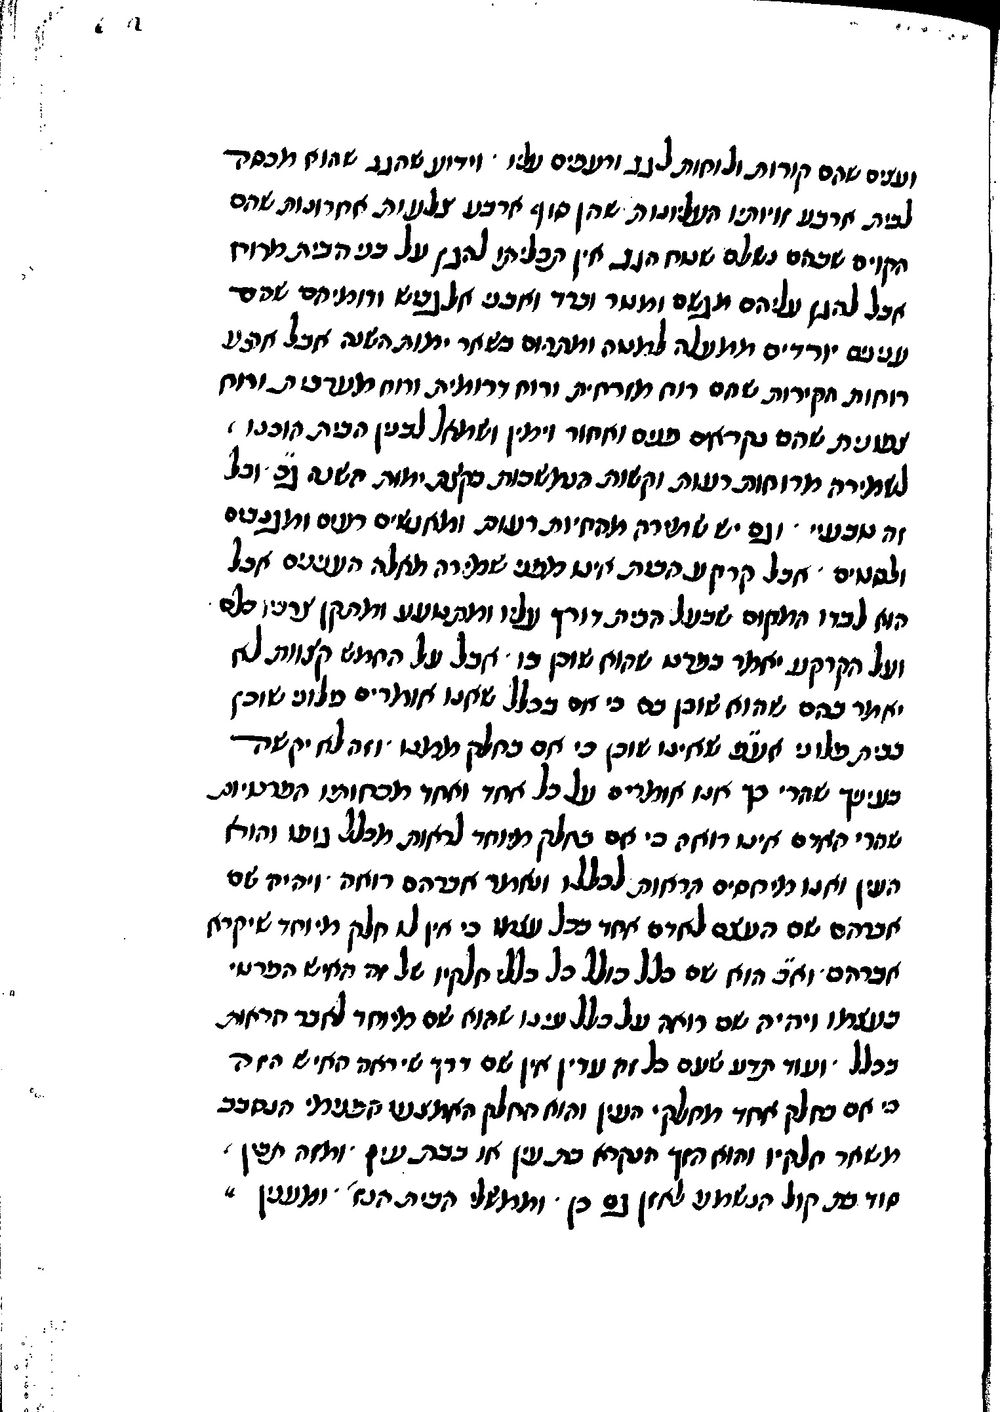 ועצים שהם קורות ולוחות לגג ורעפים עליו · וידוע שהגג שהוא מכסה
לבית ארבע זוויותיו העליונות שהן סוף ארבע צלעות אחרונות שהם
הקוים שבהם נשלם שטח הגג אין תכליתו להגן על בני הבית מרוח
אבל להגן עליהם מגשם ומטר וברד ואבני אלגביש ודומיהם שהם
ענינים יורדים ממעלה למטה ומקרום בשאר ימות השנה אבל ארבע
רוחות הקירות שהם רוח מזרחית ורוח דרומית ורוח מערבית ורוח
צפונית שהם נקראים פנים ואחור וימין ושמאל לבנין הבית הוכנו
לשמירה מרוחות רעות וקשות הנמשכות בקצת ימות השנה ג״כ · וכל
זה טבעיי · וגם יש שמירה מהחיות רעות ומאנשים רעים ומגנבים
ולסטים · אבל קרקע הבית אינו מפני שמירה מאלה הענינים אבל
הוא לבדו המקום שבעל הבית דורך עליו ומתנועע ומתקן צרכיו כלם ·
ועל הקרקע יאמר בפרט שהוא שוכן בו · אבל על החמש קצוות לא
יאמר בהם שהוא שוכן בם כי אם בכלל שאנו אומרים פלוני שוכן
בבית פלוני אע״פ שאינו שוכן כי אם בחלק ממנו · וזה לא יקשה
בעיניך שהרי כך אנו אומרים על כל אחד ואחד מכחותיו הפרטיות
שהרי האדם אינו רואה כי אם בחלק מיוחד לראות מכלל גופו והוא
העין ואנו מיחסים הראות לכללו ונאמר אברהם רואה · ויהיה שם
אברהם שם העצם לאדם אחד בכל עצמו כי אין לו חלק מיוחד שיקרא
אברהם · וא״כ הוא שם כלל כולל כל כללי חלקיו של זה האיש הפרטי
בעצמו ויהיה שם רואה על כלל עינו שהוא שם מיוחד לאבר הראות
בכלל · ועוד תדע שעם כל זה עדין אין שם דרך שיראה האיש הזה
כי אם בחלק אחד מחלקי העין והוא החלק האמצעי הפנימי הנסבב
משאר חלקיו והוא הזך הנקרא בת עין או בבת עין · ומזה תבין
סוד בת קול הנשמע לאזן גם כן · וממשלי הבית הנז׳ · ומענין